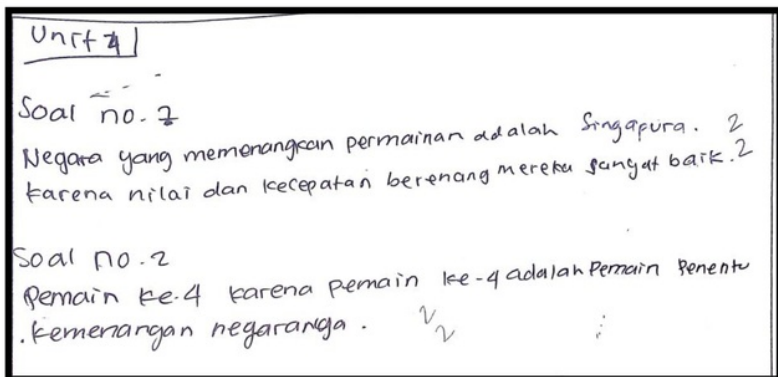 Unit 4
Soal no. 1
Negara yang memenangkan permainan adalah Singapura. 2
karena nilai dan kecepatan berenang mereka sangat baik. 2
Soal no. 2
Pemain ke.4 karena pemain ke-4 adalah Pemain Penentu
. kemenangan negaranya. 2
2